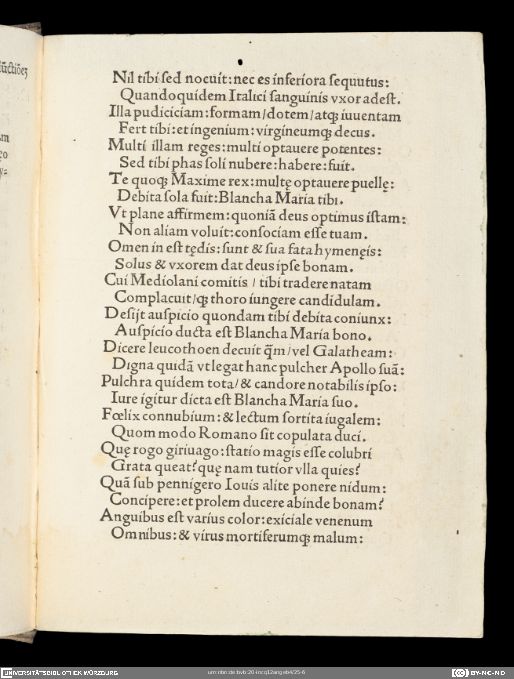 ũctiōeʒ
um
ço
y⸗
Nil tibi sed nocuit: nec es inferiora sequutus:
Quandoquidem Italici sanguinis vxor adest.
Illa pudiciciam: formam/dotem/atqꝫ iuuentam
Fert tibi: et ingenium: virgineumqꝫ decus.
Multi illam reges: multi optauere potentes:
Sed tibi phas soli nubere: habere: fuit.
Te quoqꝫ Maxime rex: multę optauere puellę:
Debita sola fuit: Blancha Maria tibi.
Vt plane affirmem: quoniā deus optimus istam:
Non aliam voluit: consociam esse tuam.
Omen in est tędis: sunt & sua fata hymenęis:
Solus & vxorem dat deus ipse bonam.
Cui Mediolani comitis / tibi tradere natam
Complacuit/qꝫ thoro iungere candidulam.
Desijt auspicio quondam tibi debita coniunx:
Auspicio ducta est Blancha Maria bono.
Dicere leucothoen decuit q̄m/vel Galatheam:
Digna quidā vt legat hanc pulcher Apollo suā:
Pulchra quidem tota/& candore notabilis ipso:
Iure igitur dicta est Blancha Maria suo.
Fœlix connubium: & lectum sortita iugalem:
Quom modo Romano sit copulata duci.
Quę rogo giriuago: statio magis esse colubri
Grata queat? quę nam tutior vlla quies?
Quā sub pennigero Iouis alite ponere nidum:
Concipere: et prolem ducere abinde bonam?
Anguibus est varius color: exiciale venenum
Omnibus: & virus mortiferumqꝫ malum:
UNIVERSITÄTSBIBLIOTHEK WÜRZBURG
urn:nbn:de:bvb:20-incq12angeb4/25-6
BY-NC-ND